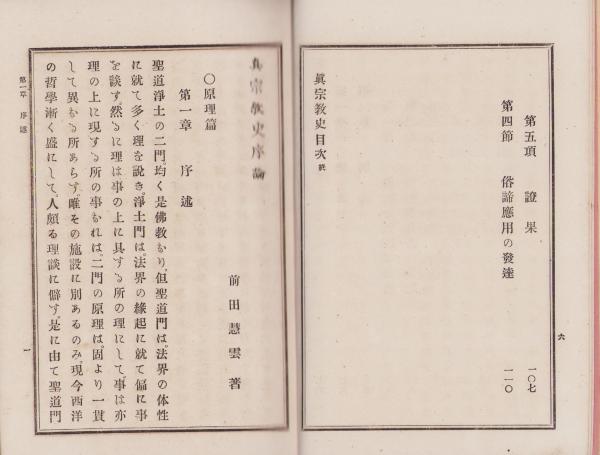 第五項　證果　一〇七
第四節　俗諦應用の發達　一一〇
眞宗教史目次 終
六
眞宗教史序論
前田慧雲著
〇原理篇
第一章　序述
聖道淨土の二門、均く是佛教なり、但聖道門は、法界の体性
に就て多く理を說き、淨土門は、法界の緣起に就て偏に事
を談ず、然るに理は事の上に具する所の理にして、事は亦
理の上に現する所の事なれは、二門の原理は、固より一貫
して異なる所あらず、唯その施設に別あるのみ、現今西洋
の哲學漸く盛にして、人頗る理談に僻す、是に由て聖道門
第一章　序述
一